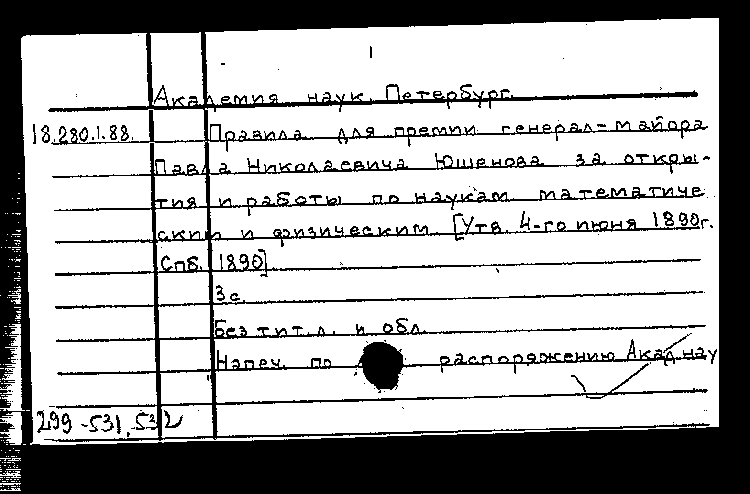 Академия наук. Петербург.
18.280.1.88. Правила для премии генерал-майора
Павла Николаевича Юшенова за откры-
тия и работы по наукам математиче
ским и физическим. [Утв. 4-го июня 1890г.
Спб. 1890].
3с.
Без тит.л. и обл.
Напеч. по распоряжению Акад.нау
299-531,532